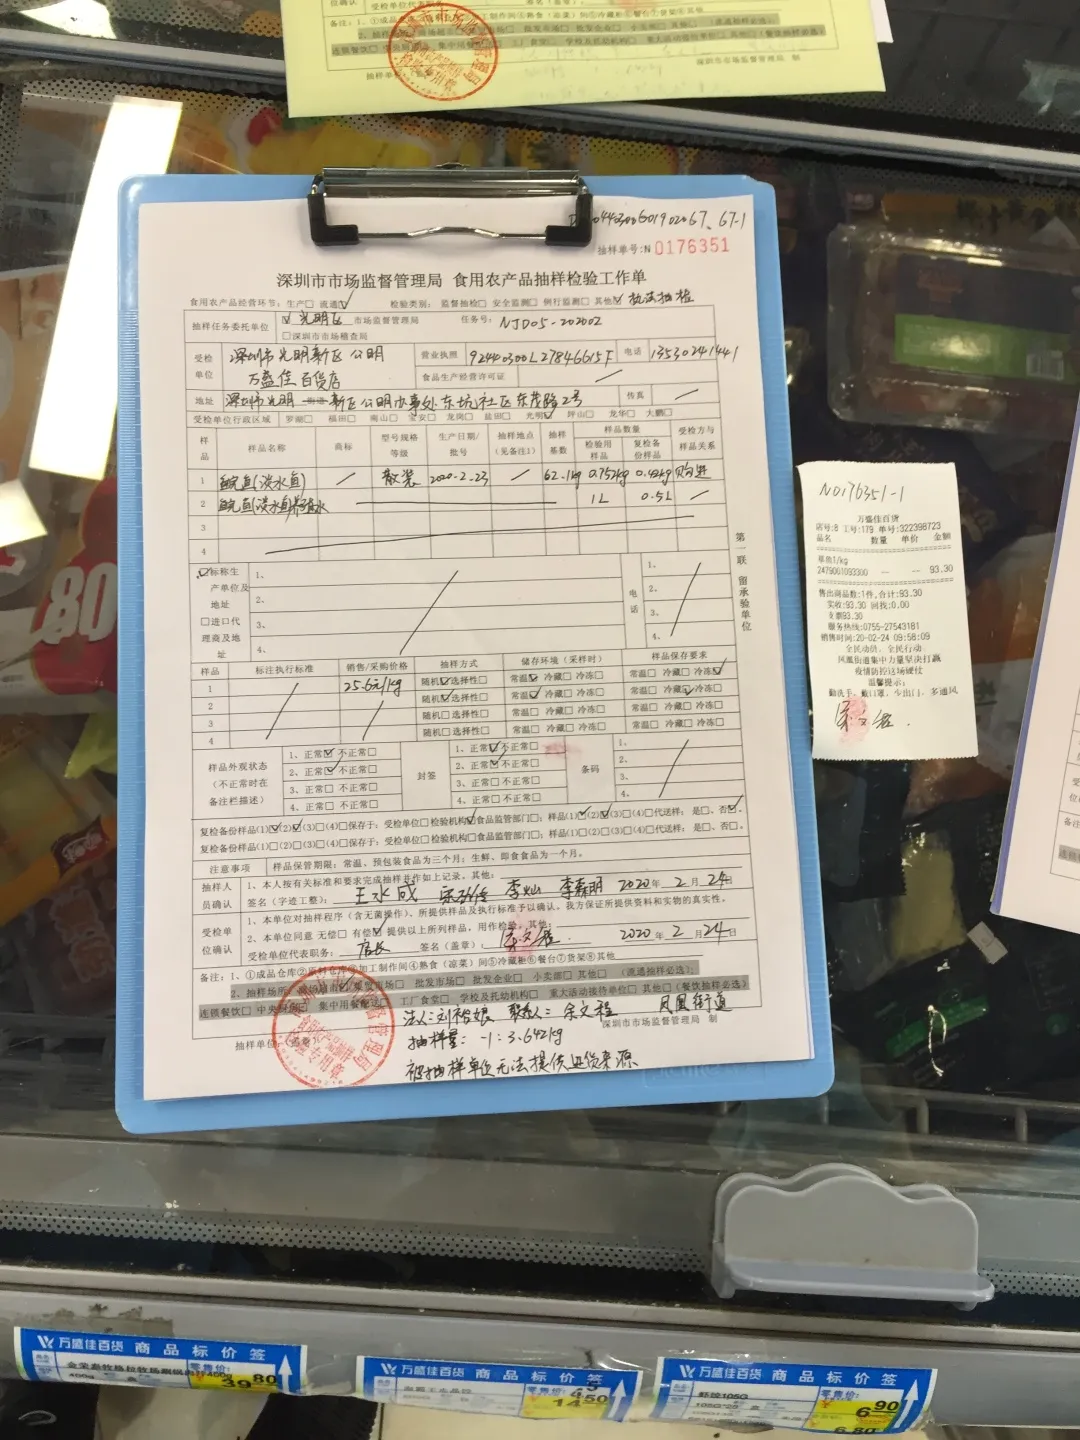 深圳市市场监督管理局 制
抽样单号:N 0176351
深圳市市场监督管理局 食用农产品抽样检验工作单
食用农产品经营环节: 生产□ 流通☑ 检验类别: 监督抽检□ 安全监测□ 例行监测□ 其他☑ 执法抽检
抽样任务委托单位 ☑ 光明区 市场监督管理局 任务号: NJD05-202002
□深圳市市场稽查局
受检单位 深圳市光明新区公明万盛佳百货店 营业执照 92440300L27846615F 电话 13530241441
食品生产经营许可证
地址 深圳市光明新区公明办事处东坑社区东茂路2号 传真
受检单位行政区域 罗湖□ 福田□ 南山□ 宝安□ 龙岗□ 盐田□ 光明☑ 坪山□ 龙华□ 大鹏□
样品 样品名称 商标 型号规格等级 生产日期/批号 抽样地点(见备注1) 抽样基数 样品数量 检验用样品 复检备份样品 受检方与样品关系
1 鲩鱼(淡水鱼) 散装 2020-2-23 62.1kg 0.752kg 购进
2 鲩鱼(淡水鱼)养殖水 1L 0.5L
3
4
☑标称生产单位及地址 1、 电话 1、
2、 2、
□进口代理商及地址 3、 3、
4、 4、
第一联 留承验单位
样品 标注执行标准 销售/采购价格 抽样方式 储存环境(采样时) 样品保存要求
1 25.6元/kg 随机☑选择性□ 常温☑ 冷藏□ 冷冻□ 常温□ 冷藏□ 冷冻☑
2 随机☑选择性□ 常温☑ 冷藏□ 冷冻□ 常温□ 冷藏☑ 冷冻□
3 随机□选择性□ 常温□ 冷藏□ 冷冻□ 常温□ 冷藏□ 冷冻□
4 随机□选择性□ 常温□ 冷藏□ 冷冻□ 常温□ 冷藏□ 冷冻□
样品外观状态(不正常时在备注栏描述) 1、正常☑ 不正常□ 封签 1、正常☑不正常□ 条码 1、
2、正常☑ 不正常□ 2、正常☑不正常□ 2、
3、正常□ 不正常□ 3、正常□不正常□ 3、
4、正常□ 不正常□ 4、正常□不正常□ 4、
复检备份样品(1)☑(2)☑(3)□(4)□保存于: 受检单位□检验机构☑食品监管部门□; 样品(1)☑(2)☑(3)□(4)□代送样: 是□、否☑。
复检备份样品(1)□(2)□(3)□(4)□保存于: 受检单位□检验机构□食品监管部门□; 样品(1)□(2)□(3)□(4)□代送样: 是□、否□。
注意事项 样品保管期限: 常温、预包装食品为三个月; 生鲜、即食食品为一个月。
抽样人员确认 1、本人按有关标准和要求完成抽样并作如上记录。其他:
签名(字迹工整): 王水成 李灿 李森明 2020年 2月 24日
受检单位确认 1、本单位对抽样程序(含无菌操作)、所提供样品及执行标准予以确认。我方保证所提供资料和实物的真实性。
2、本单位同意 无偿□ 有偿☑ 提供以上所列样品,用作检验。其他:
受检单位代表职务: 店长 签名(盖章): 余文程 2020年 2月 24日
备注: 1、①成品仓库②原料仓库③加工制作间④熟食(凉菜)间⑤冷藏柜⑥餐台⑦货架⑧其他
2、抽样场所: 批发市场□ 批发企业□ 小卖部□ 其他□ (流通抽样必选)
连锁餐饮□ 集中用餐配送□ 工厂食堂□ 学校及托幼机构□ 重大活动接待单位□ 其他□ (餐饮抽样必选)
法人:刘裕娘 联系人:余文程 凤凰街道
抽样单位 深圳市市场监督管理局 制
抽样量: -1:3.642kg
被抽样单位无法提供进货来源
NO176351-1
万盛佳百货
店号:8 工号:179 单号:322398723
品名 数量 单价 金额
草鱼1/kg
2479061093300 -- -- 93.30
售出商品数:1件,合计:93.30
实收:93.30 回找:0.00
支票93.30
服务热线:0755-27543181
销售时间:20-02-24 09:58:09
全民动员、全民行动
凤凰街道集中力量坚决打赢
疫情防控这场硬仗
温馨提示:
勤洗手、戴口罩、少出门、多通风
余文程
万盛佳百货 商品标价签
零售价:
39.80
万盛佳百货 商品标价签
零售价:
14.50
万盛佳百货 商品标价签
虾饺105G
零售价:
6.90
6.80